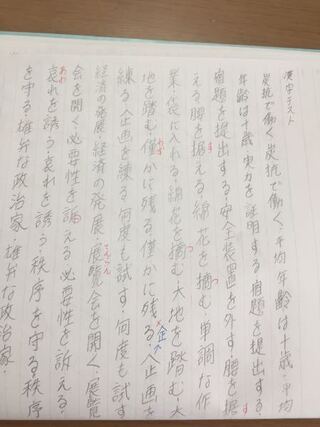 漢字テスト
炭抗で働く炭抗で働く・平均年齢は十歳・平均
年齢は十歳実力を証明する宿題を提出する・
宿題を提出する・安全装置を外す・腰を据す
える腰を据すえる綿花を摘つむ・単調な作
業・袋に入れる綿花を摘つむ・大地を踏む大
地を踏む・僅わずかに残る・僅かに残る・企入画を
練る・企画を練る・何度も試す・何度も試す
経済の発展・経済の発展・展覧てんらん会を開く・展覧
会を開く・必要性を訴える・必要性を訴える・
哀あわれを誘う・哀れを誘う・秩序を守る秩序
を守る・雄弁な政治家・雄弁な政治家・